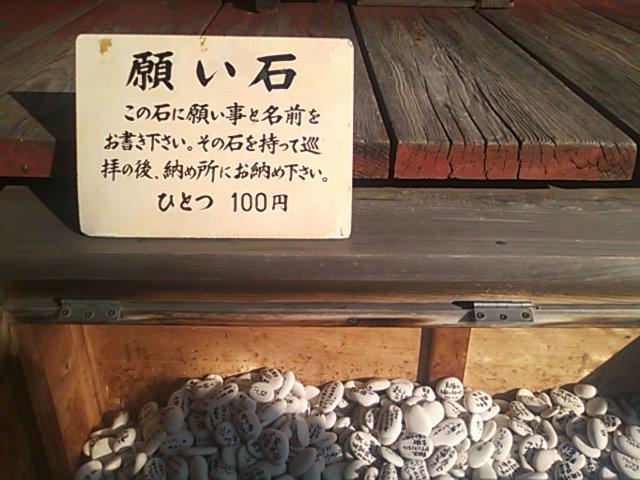 願い石
この石に願い事と名前を
お書き下さい。その石を持って巡
拝の後、納め所にお納め下さい。
ひとつ 100円